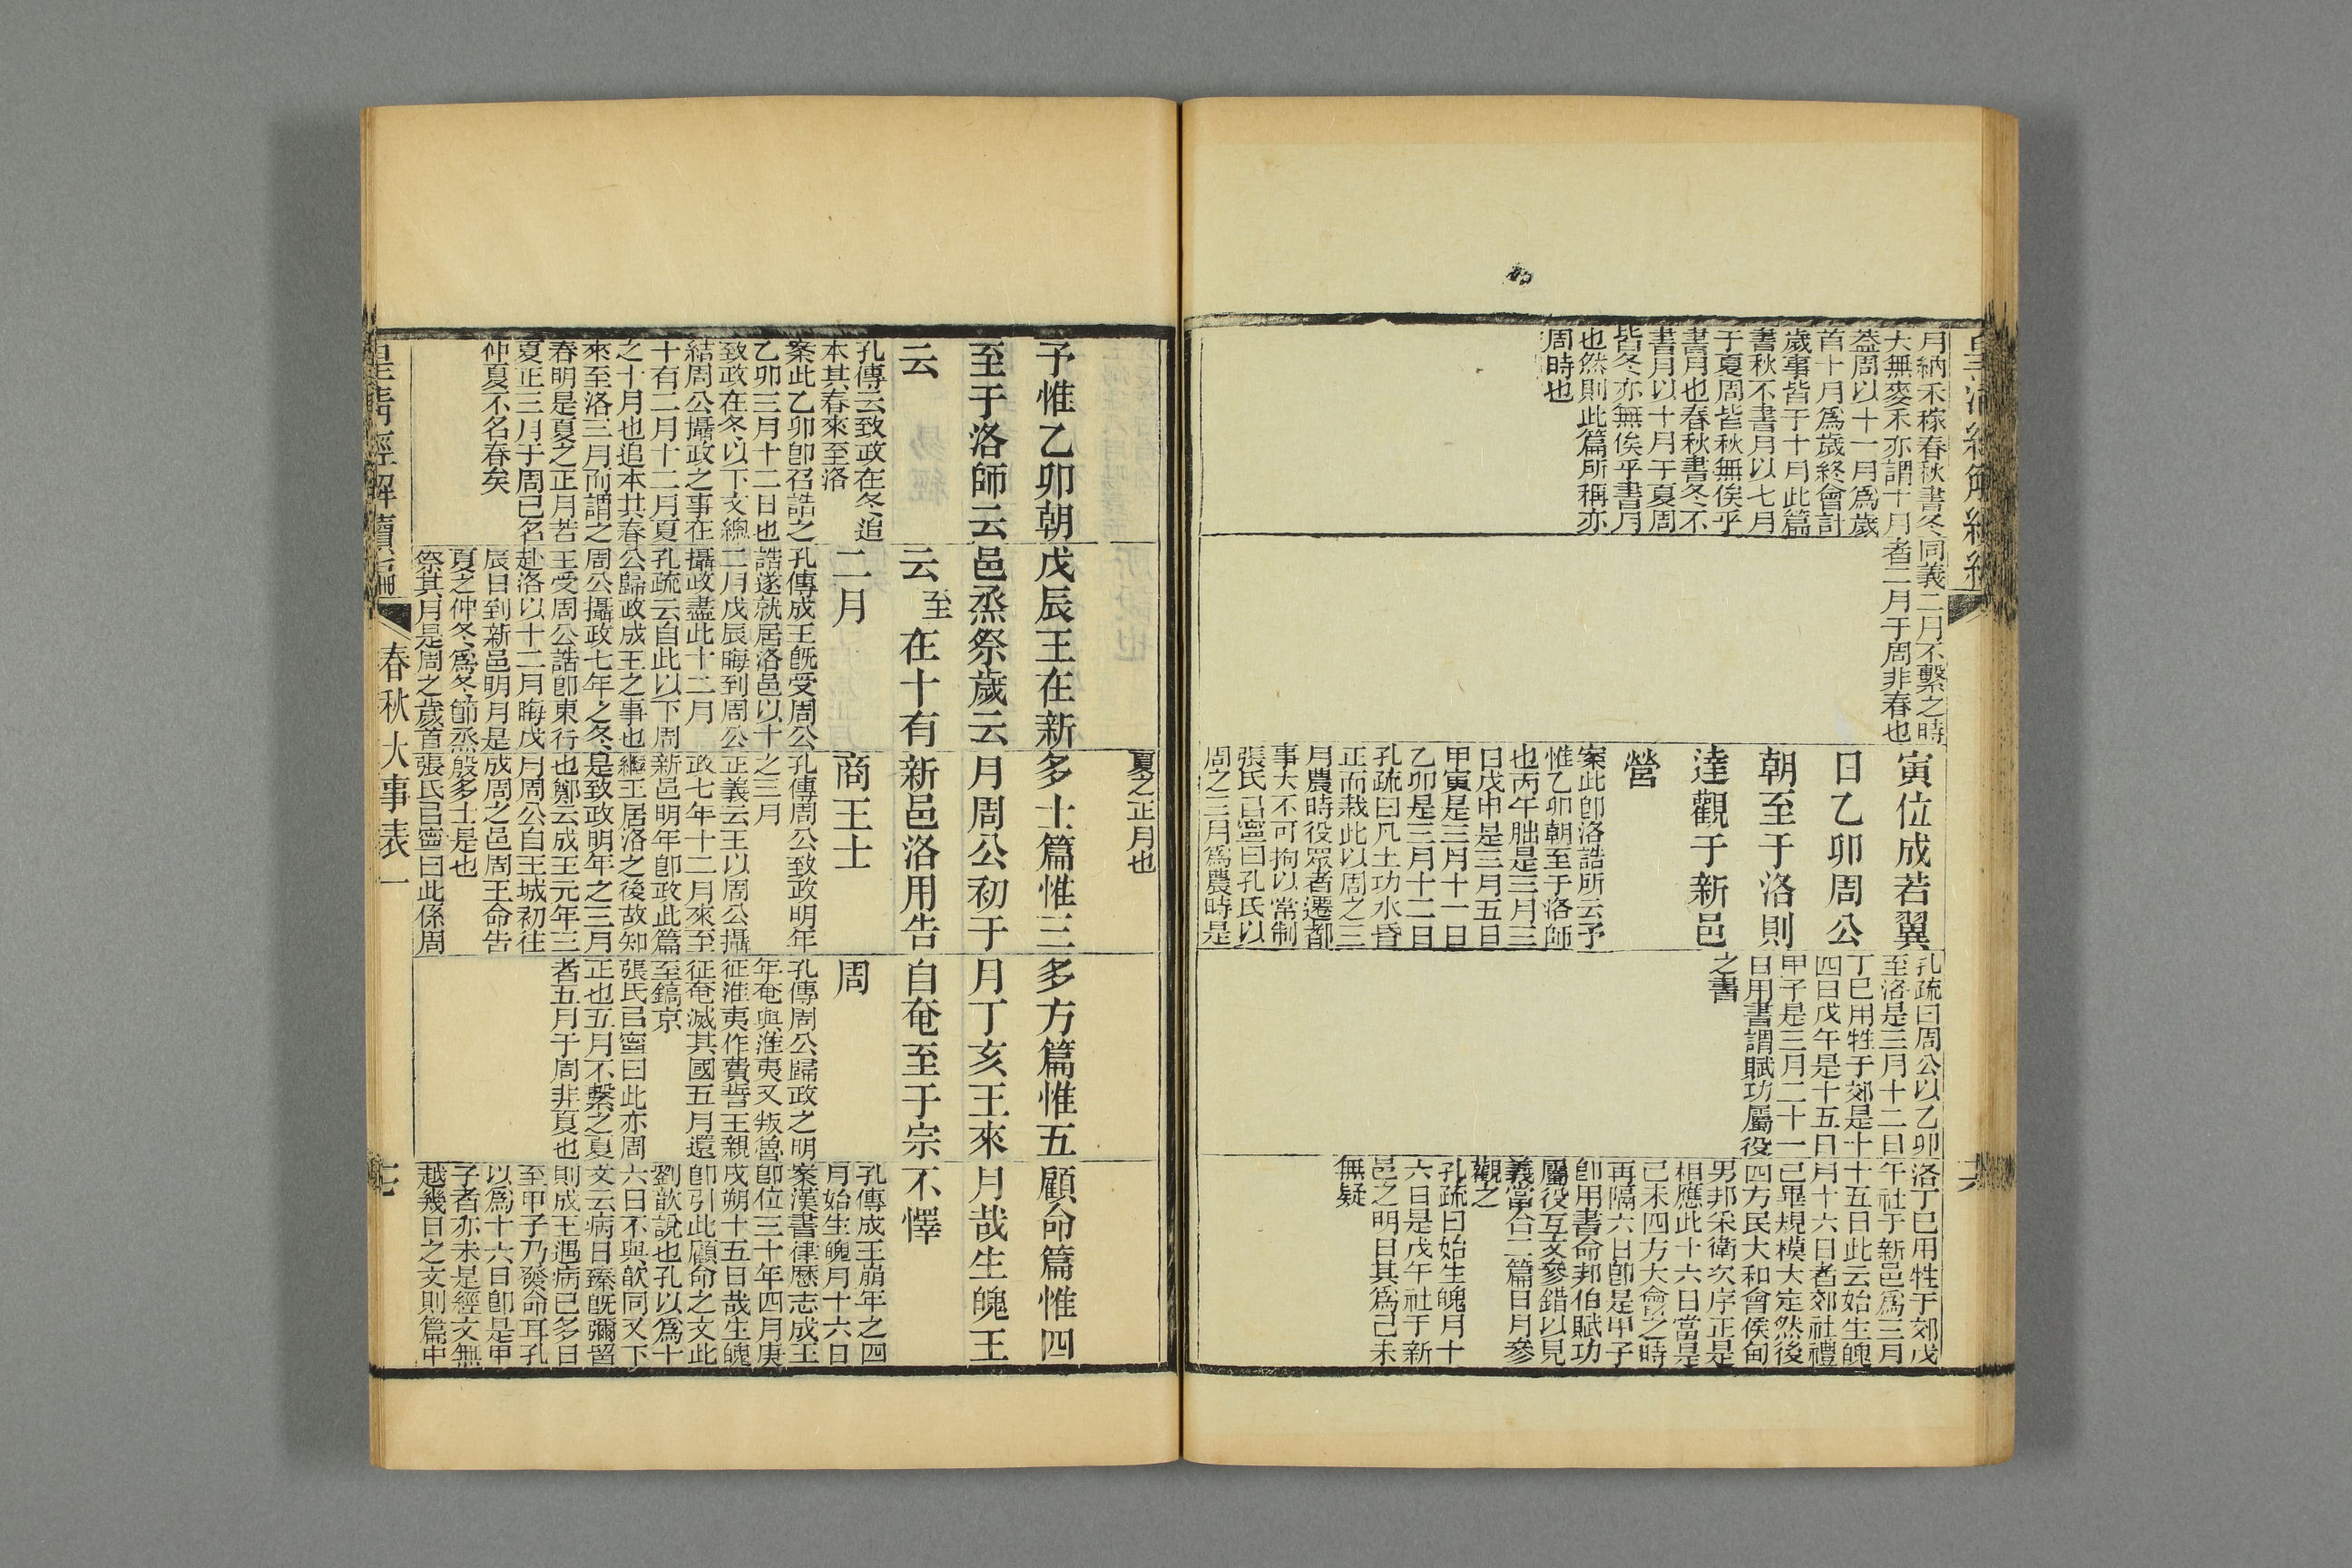 皇清經解續編
六
月納禾稼春秋書冬
大無麥禾亦謂十月
葢周以十一月爲歲
首十月爲歲終會計
歲事皆于十月此篇
書秋不書月以七月
于夏周皆秋無俟乎
書月也春秋書冬不
書月以十月于夏周
皆冬亦無俟乎書月
也然則此篇所稱亦
周時也
同義二月不繫之時
者二月于周非春也
寅位成若翼
日乙卯周公
朝至于洛則
達觀于新邑
營
案此卽洛誥所云予
惟乙卯朝至于洛師
也丙午朏是三月三
日戊申是三月五日
甲寅是三月十一日
乙卯是三月十二日
孔疏曰凡土功水昏
正而栽此以周之三
月農時役眾者遷都
事大不可拘以常制
張氏㠯寧曰孔氏以
周之三月爲農時是
孔疏曰周公以乙卯
至洛是三月十二日
丁巳用牲于郊是十
四日戊午是十五日
甲子是三月二十一
日用書謂賦功屬役
之書
洛丁巳用牲于郊戊
午社于新邑爲三月
十五日此云始生魄
月十六日者郊社禮
已畢規模大定然後
四方民大和會侯甸
男邦采衛次序正是
相應此十六日當是
己未四方大會之時
再隔六日卽是甲子
卽用書命邦伯賦功
屬役互文參錯以見
義當合二篇日月參
觀之
孔疏曰始生魄月十
六日是戊午社于新
邑之明日其爲己未
無疑
夏之正月也
予惟乙卯朝
至于洛師云
云
孔傳云致政在冬追
本其春來至洛
案此乙卯卽召誥之
乙卯三月十二日也
致政在冬以下文總
結周公攝政之事在
十有二月十二月夏
之十月也追本其春
來至洛三月而謂之
春明是夏之正月若
夏正三月于周已名
仲夏不名春矣
戊辰王在新
邑烝祭歲云
云至在十有
二月
孔傳成王旣受周公
誥遂就居洛邑以十
二月戊辰晦到周公
攝政盡此十二月
孔疏云自此以下周
公歸政成王之事也
周公攝政七年之冬
王受周公誥卽東行
赴洛以十二月晦戊
辰日到新邑明月是
夏之仲冬爲冬節烝
祭其月是周之歲首
多士篇惟三
月周公初于
新邑洛用告
商王士
孔傳周公致政明年
之三月
正義云王以周公攝
政七年十二月來至
新邑明年卽政此篇
繼王居洛之後故知
是致政明年之三月
也鄭云成王元年三
月周公自王城初往
成周之邑周王命告
殷多士是也
張氏㠯寧曰此係周
多方篇惟五
月丁亥王來
自奄至于宗
周
孔傳周公歸政之明
年奄與淮夷又叛魯
征淮夷作費誓王親
征奄滅其國五月還
至鎬京
張氏㠯寧曰此亦周
正也五月不繫之夏
者五月于周非夏也
顧命篇惟四
月哉生魄王
不懌
孔傳成王崩年之四
月始生魄月十六日
案漢書律厯志成王
卽位三十年四月庚
戌朔十五日哉生魄
卽引此顧命之文此
劉歆說也孔以爲十
六日不與歆同又下
文云病日臻旣彌留
則成王遇病已多日
至甲子乃發命耳孔
以爲十六日卽是甲
子者亦未是經文無
越幾日之文則篇中
皇清經解續編
春秋大事表一
七